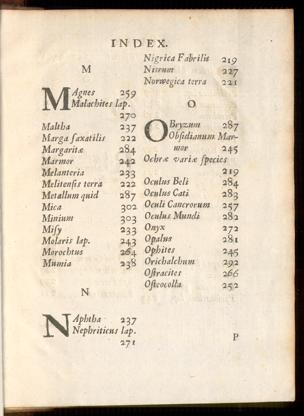 INDEX.
M
MAgnes 259
Malachites lap.
270
Maltha 237
Marga saxatilis 222
Margaritæ 284
Marmor 242
Melanteria 233
Melitensis terra 222
Metallum quid 287
Mica 302
Minium 303
Misy 233
Molaris lap. 243
Morochtus 264
Mumia 238
N
NAphtha 237
Nephriticus lap.
271
Nigrica Fabrilis 219
Nitrum 227
Norwegica terra 221
O
OBryzum 287
Obsidianum Mar-
mor 245
Ochræ variæ species
219
Oculus Beli 284
Oculus Cati 283
Oculi Cancrorum 257
Oculus Mundi 282
Onyx 272
Opalus 281
Ophites 245
Orichalchum 292
Ostracites 266
Osteocolla 252
P